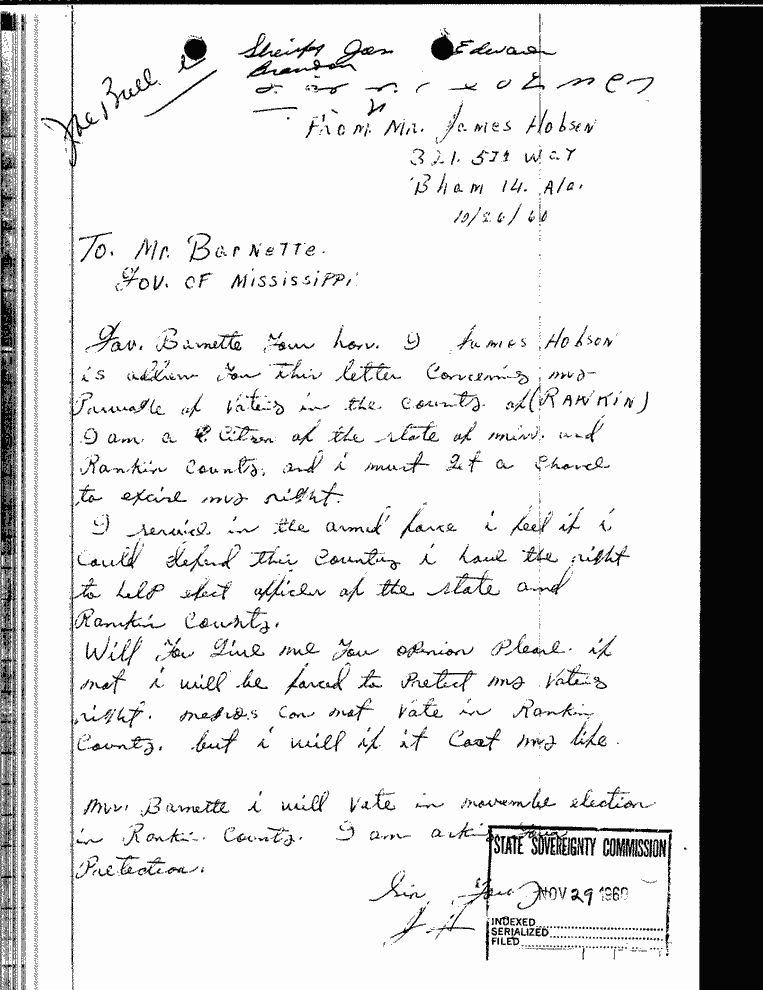 Joe Bull
Edward
Brandon
From. Mr. James Hobson
321. 5TH WAY
B ham 14. Ala.
10/26/60
To. Mr. BarNeTTe.
GOV. OF MississiPPi
Gov. Barnette Your hon. I James Hobson
is address You this letter Concerning my
of Voteing in the County of (RANKIN)
I am a Citizen of the state of miss. and
Rankin County. and i must get a
to my right.
I in the armed force i feel if i
Could defend this Country i have the right
to help elect officer of the state and
Rankin County.
Will You Give me You opinion Please. if
not i will be forced to Pretect my Voteing
right. negros Can not Vote in Rankin
County. but i will if it Cost my life.
Mr. Barnette i will Vote in novembe election
in Rankin County. I am asking Your
Pretection.
Sin
J H
STATE SOVEREIGNTY COMMISSION
NOV 29 1960
INDEXED
SERIALIZED
FILED